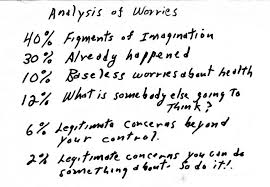 Analysis of Worries
40% Figments of Imagination
30% Already happened
10% Baseless worries about health
12% What is somebody else going to
think?
6% Legitimate concerns beyond
your control.
2% Legitimate concerns you can do
something about. So do it!.